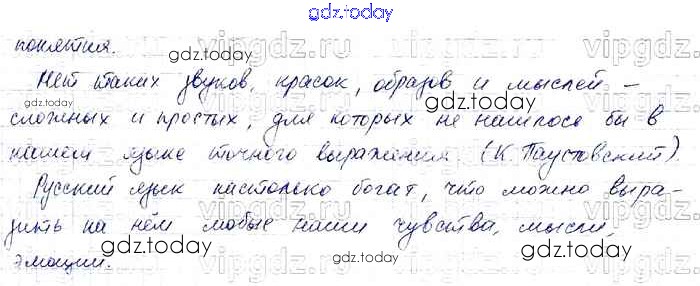 gdz.today
понятия.
gdz.today
Нет таких звуков, красок, образов и мыслей –
gdz.today
сложных и простых, для которых не нашлось бы в
gdz.today
нашем языке точного выражения (К. Паустовский).
gdz.today
Русский язык настолько богат, что можно выра-
gdz.today
зить на нём любые наши чувства, мысли,
gdz.today
эмоции.
gdz.today